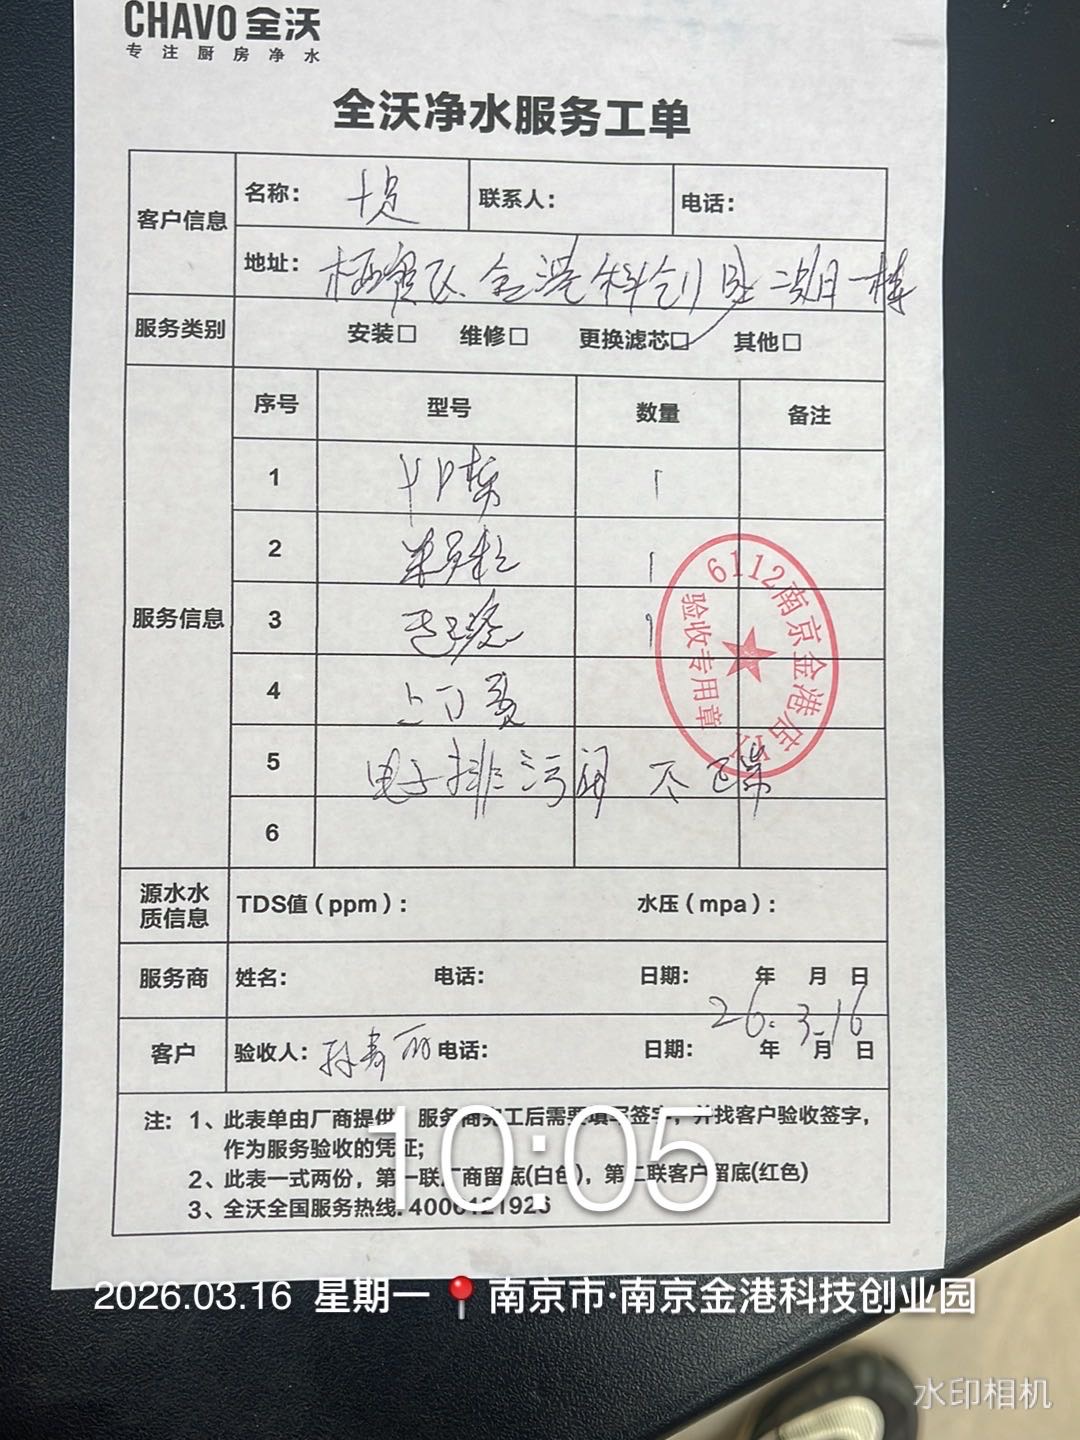 CHAVO 全沃
专注厨房净水
全沃净水服务工单
客户信息
名称： 十足
联系人：
电话：
地址： 栖霞区金港科创园二期一栋
服务类别
安装□ 维修□ 更换滤芯□ 其他□
服务信息
序号 型号 数量 备注
1 PP棉 1
2 1
3 1
4 上门费
5 电子排污阀 不
6
源水水质信息
TDS值（ppm）： 水压（mpa）：
服务商
姓名： 电话： 日期： 年 月 日
26.3.16
客户
验收人：孙寿丽 电话： 日期： 年 月 日
注：1、此表单由厂商提供，服务商完工后需要填写签字，并找客户验收签字，
作为服务验收的凭证；
2、此表一式两份，第一联厂商留底(白色)，第二联客户留底(红色)
3、全沃全国服务热线：4000121926
6112南京金港店
验收专用章
10:05
2026.03.16 星期一 南京市·南京金港科技创业园
水印相机